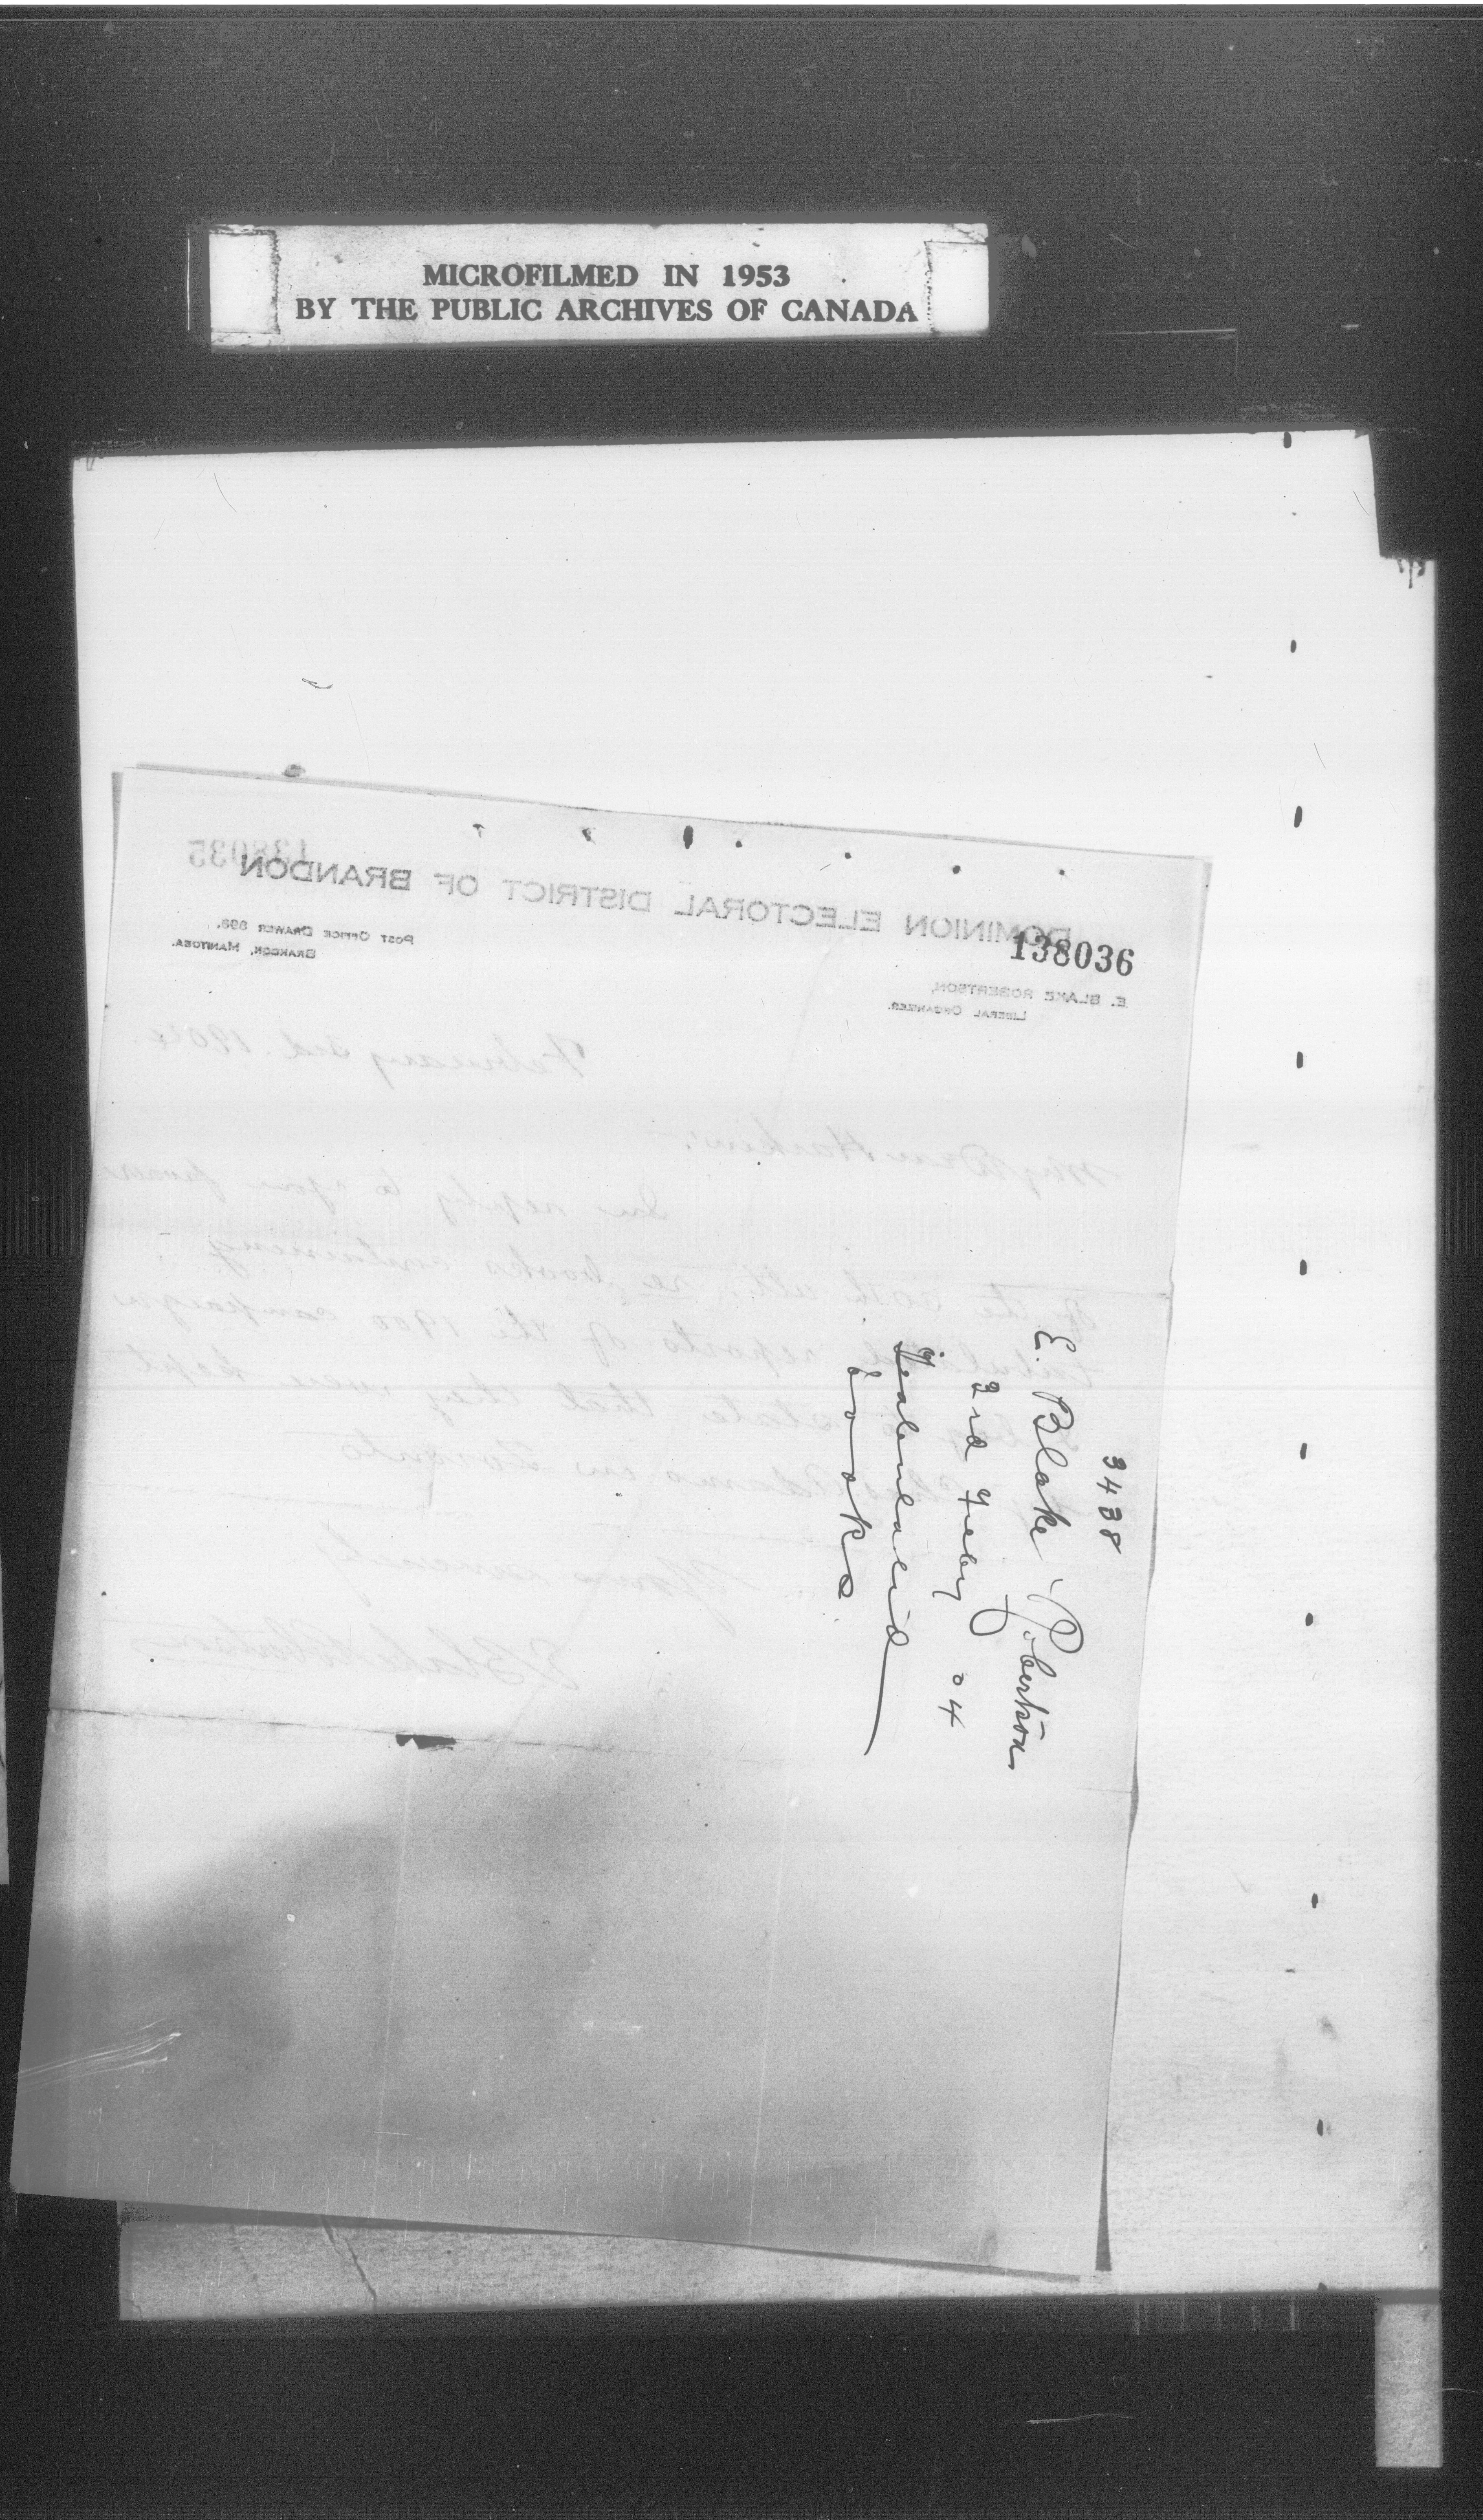 MICROFILMED IN 1953
BY THE PUBLIC ARCHIVES OF CANADA
138035
DOMINION ELECTORAL DISTRICT OF BRANDON
POST OFFICE DRAWER
BRANDON, MANITOBA.
138036
E. BLAKE ROBERTSON,
LIBERAL ORGANIZER.
February 3rd. 1904
My Dear
In reply to your favour
of the 30th ult. re books containing
reports of the 1900 campaign
state that they were kept
in Toronto
Yours sincerely
E Blake Robertson
3438
E. Blake Robertson
3rd Feby 04
books